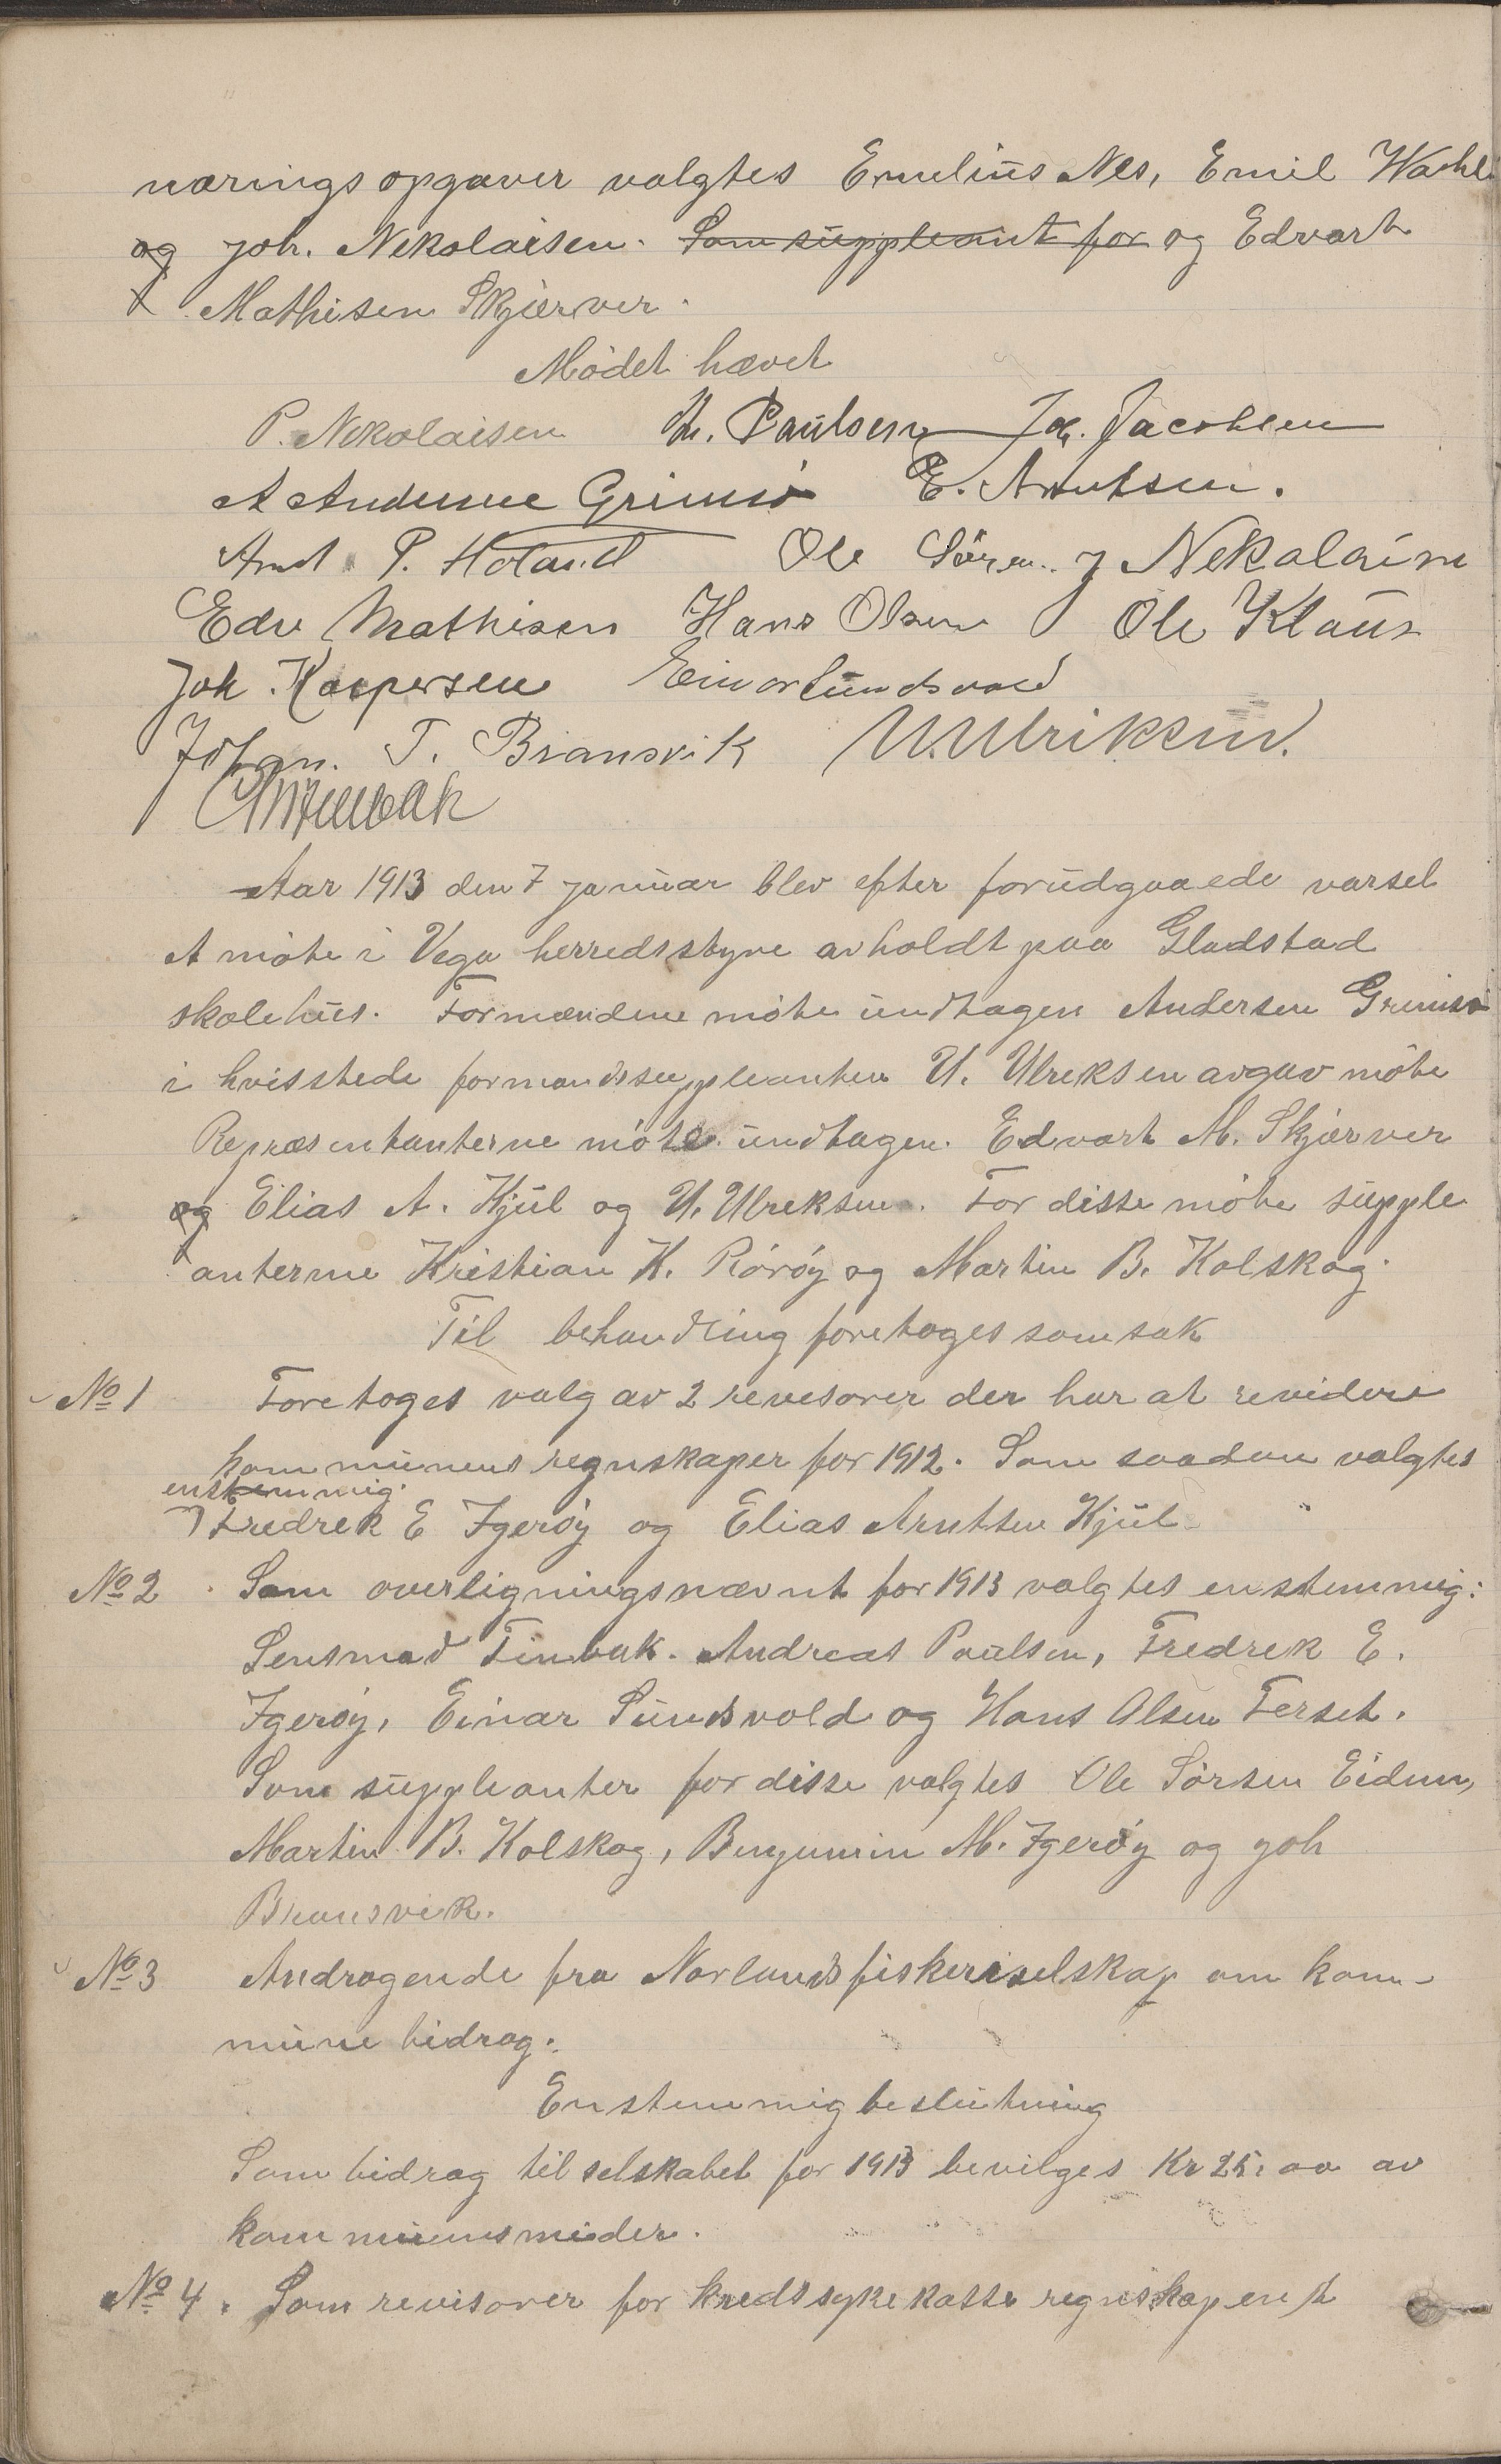 næringsopgaver valgtes Emelius Nes, Emil Wahl
og Joh. Nekolaisen. Som suppleant for og Edvart
Mathisen Skjærver.
Mödet hævet
P. Nekolaisen Kr. Paulsen Jak. Jacobsen
A Andersen Grimsö E. Arntsen.
Arnt P. Holand Ole Sören. J Nekolaisen
Edv Mathisen Hans Olsen Ole Klaus
Joh. Kaspersen Einar Sundsvold
Johan. T. Bransvik U. Ulriksen.
Aar 1913 den 7 januar blev efter forudgaaede varsel
et möte i Vega herredsstyre avholdt paa Gladstad
skolehus. Formændene möte undtagen Andersen Grimsö
i hvisstede formandssuppleanten U. Ulreksen avgav möte
Repræsentanterne möte undtagen Edvart M. Skjærver
og Elias A. Kjul og U. Ulreksen. For disse möte supple
anterne Kristian K. Röröy og Martin B. Kolskog.
Til behandling foretoges som sak
No 1 Foretoges valg av 2 revesorer der har at revidere
kommunens regnskaper for 1912. Som saadan valgtes
enstemmig.
Fredrek E Igeröy og Elias Arntsen Kjul
No 2 Som overligningsnævnt for 1913 valgtes enstemmig:
Lensmad Finbak. Andreas Paulsen, Fredrek E.
Igeröy, Einar Sundsvold og Hans Olsen Ferset.
Som suppleanter for disse valgtes Ole Sörsen Eidem,
Martin B. Kolskog, Benjamin M. Igeröy og Joh
Bransvek.
No 3 Andragende fra Norlands fiskeriselskap om kom-
mune bidrag.
Enstemmig beslutning
Som bidrag til selskabet for 1913 bevilges Kr 25,00 av
kommunens midler.
No 4. Som revisorer for kredssykekasse regnskapene